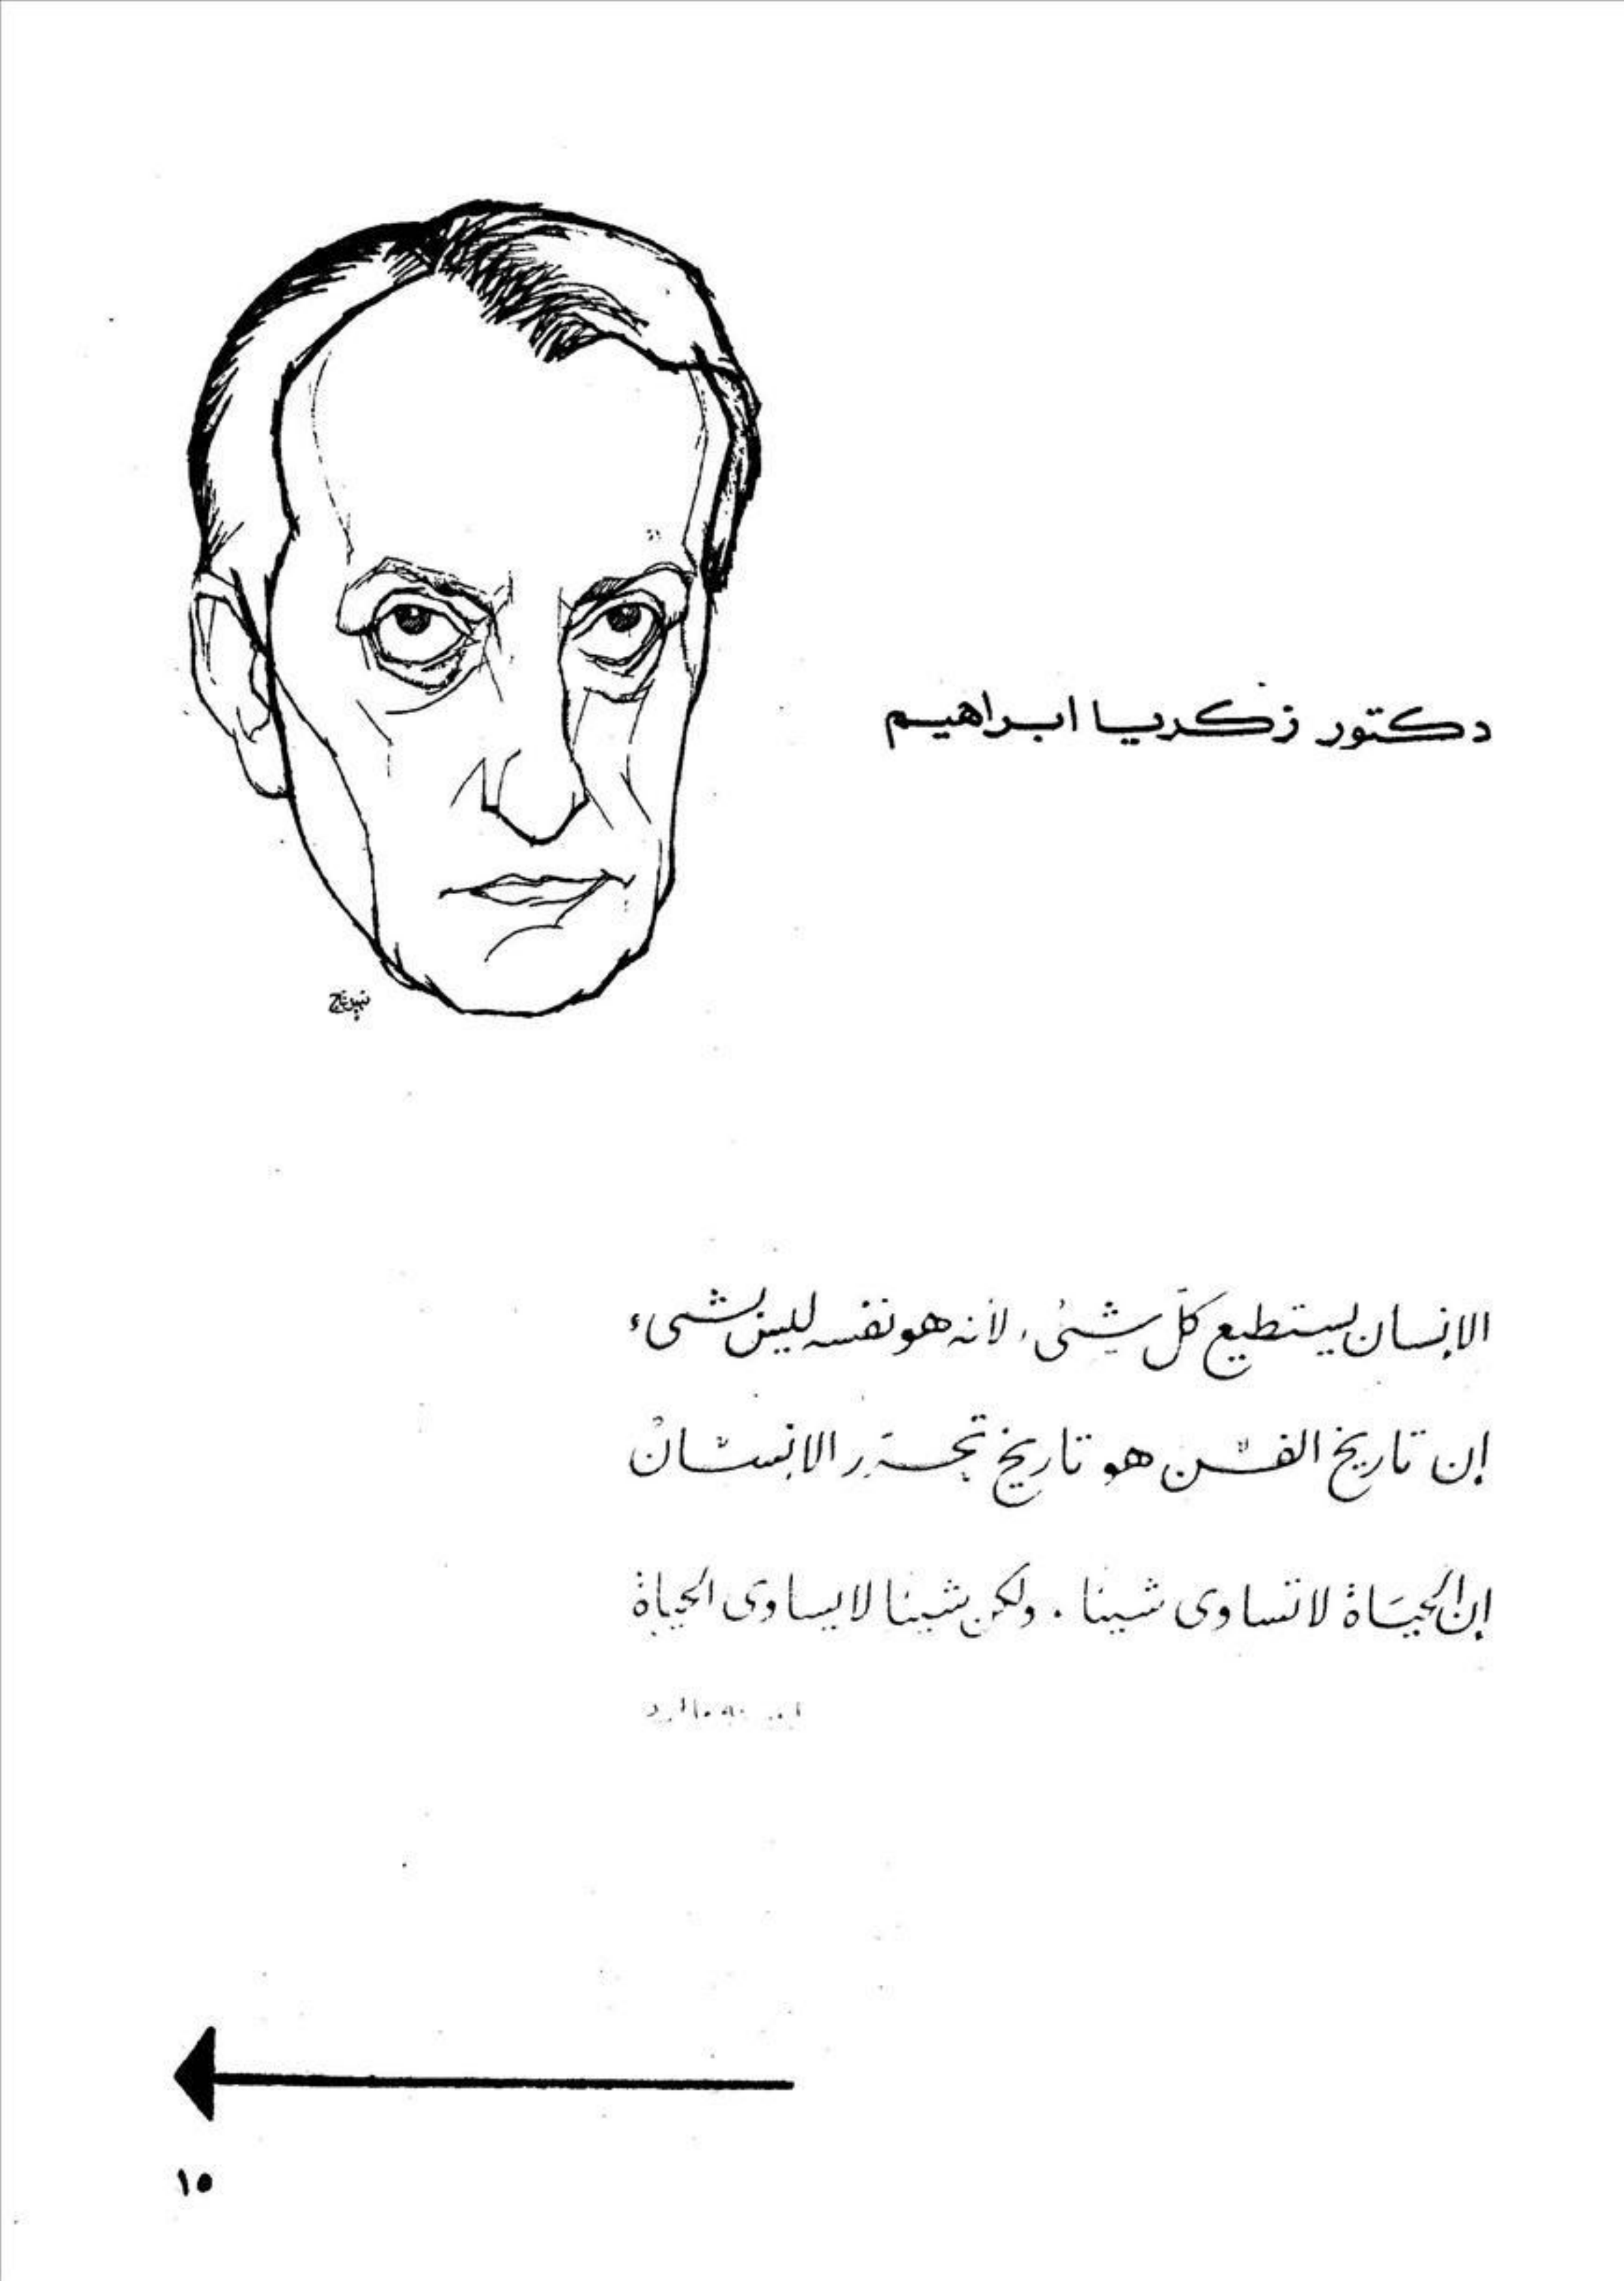 دكتور زكريا ابراهيم
الانسان يستطيع كلّ شئ، لأنه هو نفسه ليس بشىء
إن تاريخ الفن هو تاريخ تحرّر الانسان
إن الحياة لا تساوى شيئا . ولكن شيئا لا يساوى الحياة
١٥